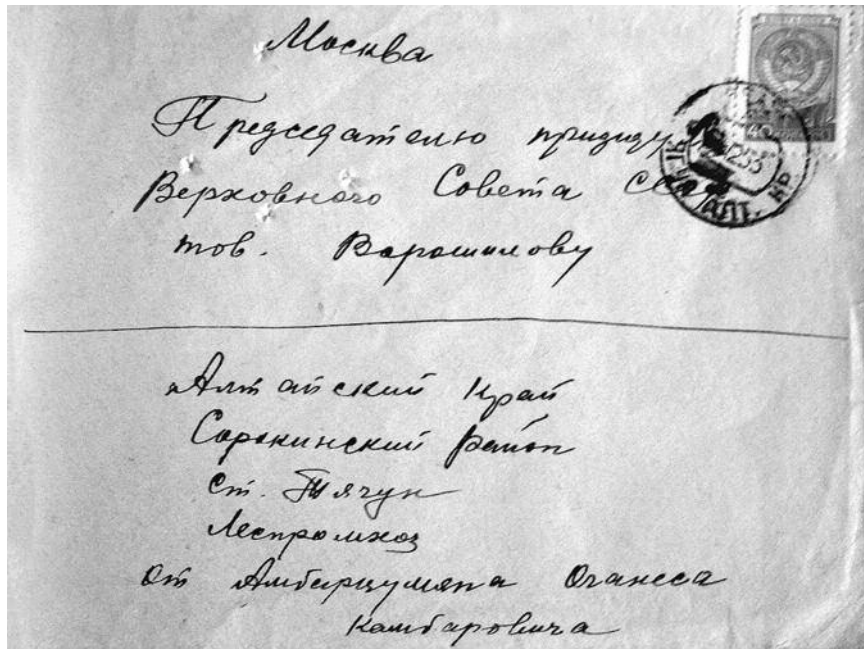 Москва
Председателю призиду
Верховного Совета СССР
тов. Варошилову
40
25
АЛТ. КР
Алтайский Край
Сорокинский Район
ст. Тягун
Леспромхоз
от Амбарцумяна Оганеса
Камбаровича